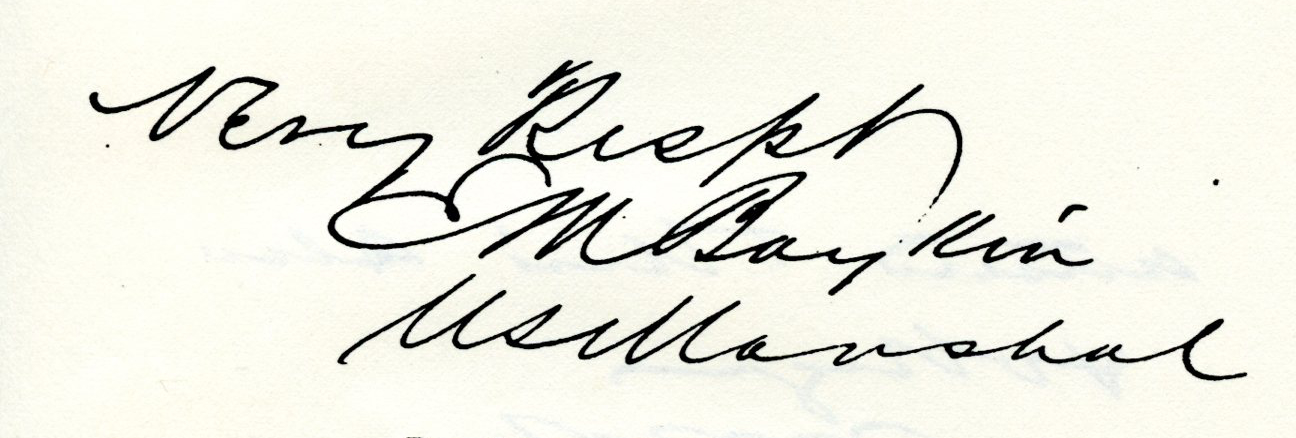 Very Respt
E M Boykin
US Marshal